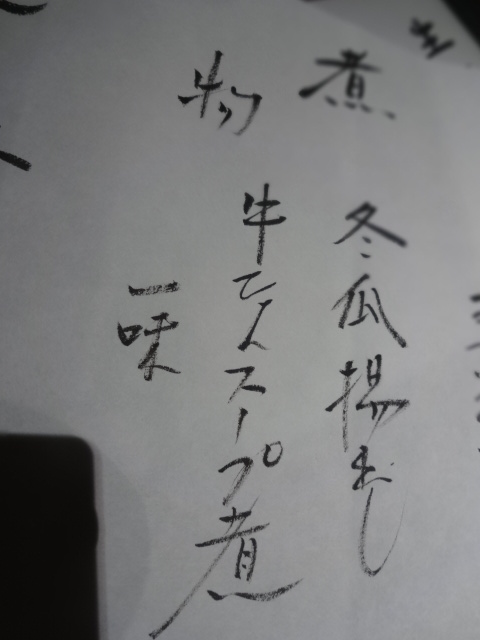 煮物
冬瓜揚出し
牛 スープ煮
一味